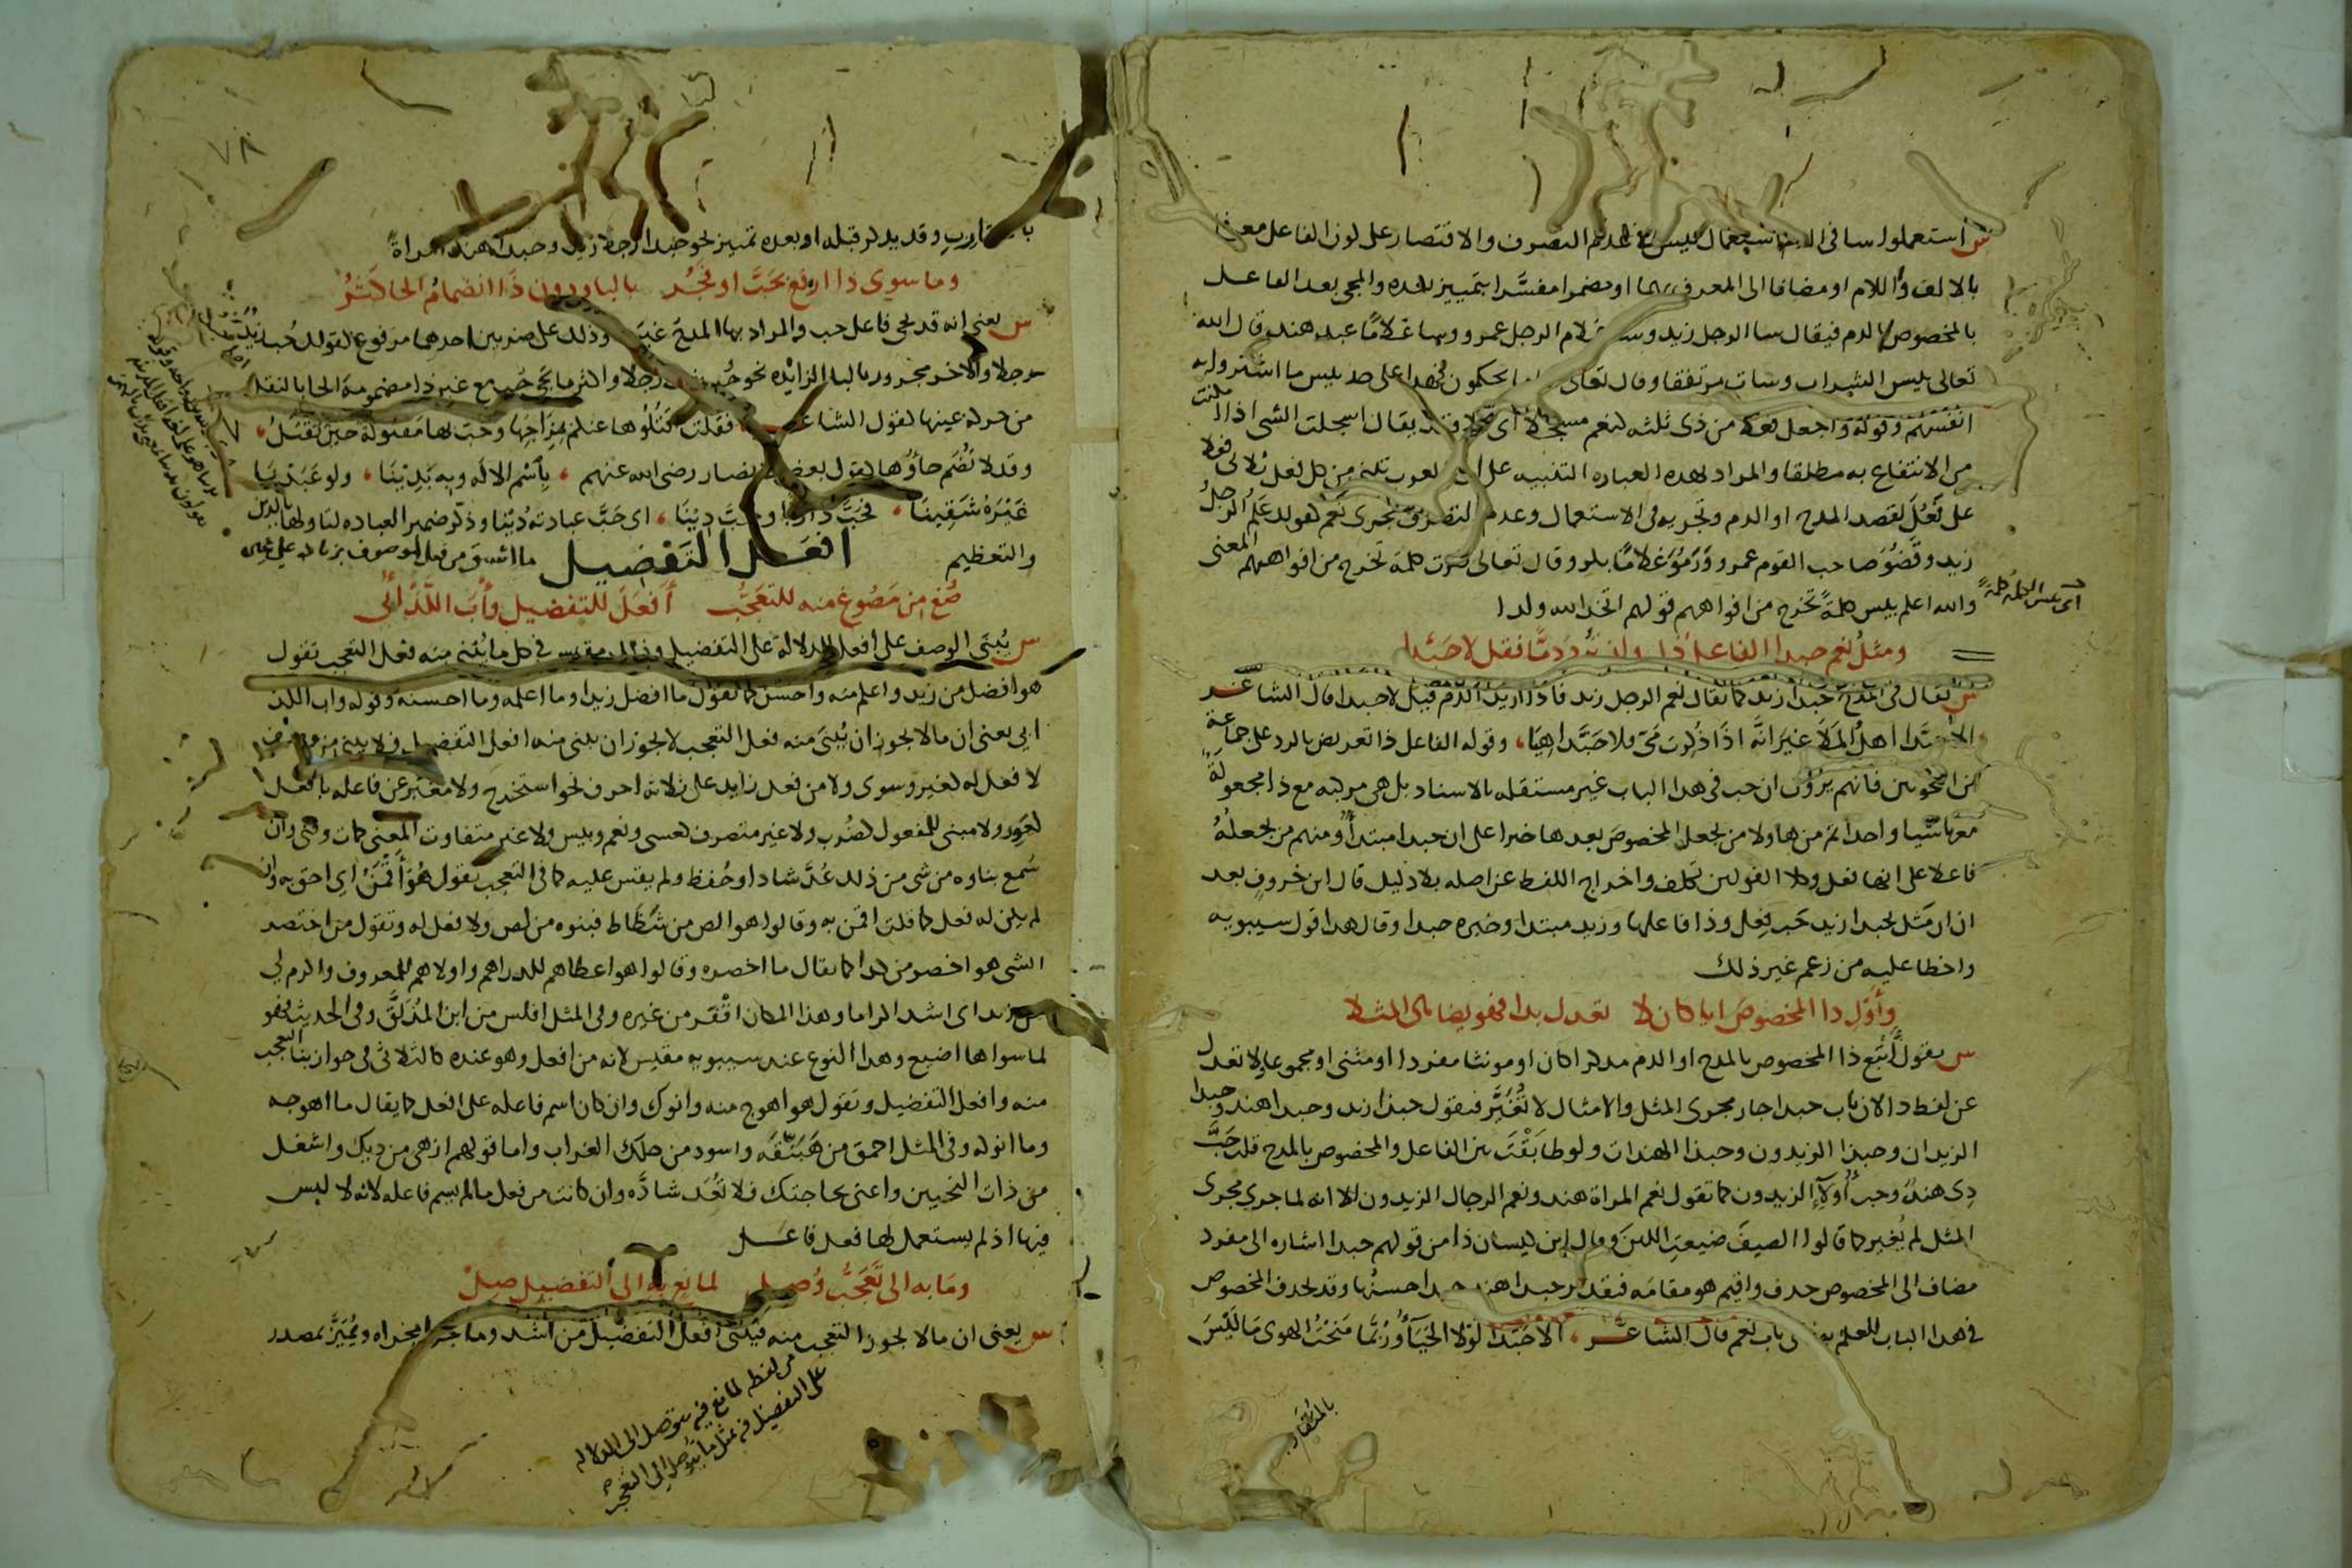 ش استعملوا سا فى الذم استعمال بيس فى عدم التصرف والاقتصار على لون الفاعل معرفا
بالالف واللام او مضافا الى المعرف بهما او مضمرا مفسَّرا بتمييز بعده والمجى بعد الفاعل
بالمخصوص بالدم فيقال سا الرجل زيد وسا غلام الرجل عمرو وسا غلامًا عبد هند وقال الله
تعالى بيس الشراب وسات مرتفقا وقال تعالى سا ما يحكمون فهذا على حد بيس ما اشتروا به
انفسهم وقوله واجعل فعلا من ذى ثلثه كنعم مسجلا اى مطلقا يقال اسجلت الشى اذا امكنت
من الانتفاع به مطلقا والمراد بهده العباره التنبيه على ان العرب تبنى من كل فعل ثلاثى فعلا
على فَعُلَ لقصد المدح او الدم وتجريه فى الاستعمال وعدم التصرف مجرى نعم كقولك عَلُمَ الرجلُ
زيد وقَضُوَ صاحب القوم عمرو ورَمُوَ غلامًا بكر وقال تعالى كبرت كلمة تخرج من افواههم المعنى
والله اعلم بيس كلمةً تخرج من افواههم قولهم اتخذ الله ولدا
اى بيس الكلمة كلمةً
ومثلُ نعم حبدا الفاعلُ ذا وان تُرد ذمًّا فقل لا حبّذا
ش يقال فى المدح حبدا زيد كما يقال نعم الرجل زيد فاذا اريد الدم قيل لا حبدا قال الشاعر
الا حبّذا اهلُ المَلَا غيرَ انَّه اذا ذُكِرت مَىّ فلا حَبَّذا هيَا، وقوله الفاعل ذا تعريض بالرد على جماعة
من النحويين فانهم يرون ان حب فى هدا الباب غير مستقله بالاسناد بل هى مركبه مع ذا مجعولةً
معها شيا واحدا ثم من هاولا من يجعل المخصوص بعدها خبرا على ان حبدا مبتدأ ومنهم من يجعلهُ
فاعلا على انها فعل وكلا القولين تكلف واخراج اللفظ عن اصله بلا دليل قال ابن خروفٍ بعد
ان مَثَّل بحبدا زيد حَبَّ فِعل وذا فاعلها وزيد مبتدا وخبره حبدا وقال هدا قول سيبويه
واخطا عليه من زعم غير ذلك
وأَوْلِ ذا المخصوصَ ايا كان لا تعدل بدا فهو يضاهى المثلا
ش يقول أَتْبِع ذا المخصوص بالمدح او الدم مدكرا كان او مونثا مفردا او مثنى او مجموعا ولا تعدل
عن لفظ دا لان باب حبدا جار مجرى المثل والامثال لا تُغَيَّر فيقول حبذا زيد وحبدا هند وحبدا
الزيدان وحبذا الزيدون وحبذا الهندات ولو طابَقْتَ بين الفاعل والمخصوص بالمدح قلت حَبَّ
دى هندُ وحب أُولآءِ الزيدون كما تقول نعم المراة هند ونعم الرجال الزيدون الا انه لما جرى مجرى
المثل لم يُغير كما قالوا الصيفَ ضيعتِ اللبنَ وقال ابن كيسان ذا من قولهم حبدا اشاره الى مفرد
مضاف الى المخصوص حدف واقيم هو مقامَه فيقدر حبدا هند حبدا حسنُها وقد يحدف المخصوص
فى هدا الباب للعلم به كما فى باب نعم قال الشاعر، الا حَبّذا لولا الحَيَآءُ ورُبَّما مَنَحْتُ الهوى مَا ليْسَ
بالمتقارب
٧٨
بالمتقاربِ وقد يدكر قبله او بعده تمييز نحو حبدا رجلا زيد وحبدا هند امراةً
وما سوى ذا ارفع بحَبَّ او فجُر بالبا ودون ذَا انضمامُ الحا كثُرُ
ش يعنى انه قد يجى فاعل حب والمراد بها المدح غير ذا وذلك على ضربين احدهما مرفوع كقولك حُب زيدٌ
رجلا والاخر مجرور بالبا الزايْده نحو حُب بزيد رجلا واكثر ما يجى حُب مع غير ذا مضمومة الحا بالنقل
من حركة عينها كقول الشاعر، فقلت اقتُلُوها عنكم بمِزَاجِها وحُبّ بها مَقتولة حينَ تُقتَلُ،
وقد لا تُضم حآؤُها كقول بعض الانصار رضى الله عنهم، بِاسْم الالَه وبه بَدِيْنَا، ولو عَبَدْنا
غَيْرَهُ شَقِينا، فحَبَّ دا ربا وحَبَّ دِيْنَا، اى حَبَّ عبادتُه دِيْنًا وذكّر ضمير العباده لتاولها بالدين
والتعظيم
افعل التفضيل
صُغ من مَصُوغٍ منه للتعَجُّبِ أفعَلَ للتفضيل وأْبَ اللَّذْ أُبى
ش يُبنَى الوصف على افعل للدلالة على التفضيل وذلك مقيس فى كل ما يُبنى منه فعل التعجب تقول
هو افضل من زيد واعلم منه واحسن كما تقول ما افضل زيدا وما اعلمه وما احسنه وقوله واب اللذ
ابى يعنى ان ما لا يجوز ان يُبنَى منه فعل التعجب لا يجوز ان يبنى منه افعل التفضيل فلا يبنى من وصف
لا فعل له كغير وسوى ولا من فعل زايد على ثلاثه احرف نحو استخرج ولا معبّر عن فاعله بافعل
كعَوِر ولا مبنى للمفعول كضُرب ولا غير متصرف كعسى ونعم وبيس ولا غير متفاوت المعنى كمات وفنى وان
سُمع بناوه من شى من ذلك عُدَّ شادا وحُفظ ولم يقس عليه كما فى التعجب تقول هُوَ أَقْمَنُ اى احق به وان
لم يكن له فعل كما قلت اقمن به وقالوا هو الص من شِظَاظ فبنوه من لص ولا فعل له وتقول من اختصر
الشى هو اخصر من كدا كما يقال ما اخصره وقالوا هو اعطاهم للدراهم واولاهم للمعروف واكرم لى
من زيد اى اشد اكراما وهذا المكان اقْفَر من غيره وفى المثل افلس من ابن المُذَلَّق وفى الحديث فهو
لما سواها اضيع وهدا النوع عند سيبويه مقيس لانه من افعل وهو عنده كالثلاثى فى جواز بنا التعجب
منه وافعل التفضيل وتقول هو اهوج منه وانوك وان كان اسم فاعله على افعل كما يقال ما اهوجه
وما انوكه وفى المثل احمق من هَبَنَّقَه واسود من حلك الغراب واما قولهم ازهى من ديك واشغل
من ذات النحيين واعنى بحاجتك فلا تُعَد شادَّه وان كانت من فعل ما لم يسم فاعله لانه لا لبس
فيها اذ لم يستعمل لها فعل فاعل
ومَا به الى تعَجُّبٍ وُصِل لمانِعٍ بِهِ الى التفضيلِ صِلْ
ش يعنى ان ما لا يجوز التعجب منه فيُبنَى افعلُ التفضيل من اشد وما جرى مجراه ويُمَيَّز بمصدر
من لفظه لمانع فيه يتوصل الى الدلاله
على التفضيل فيه بمثل ما يتوصل الى التعجب